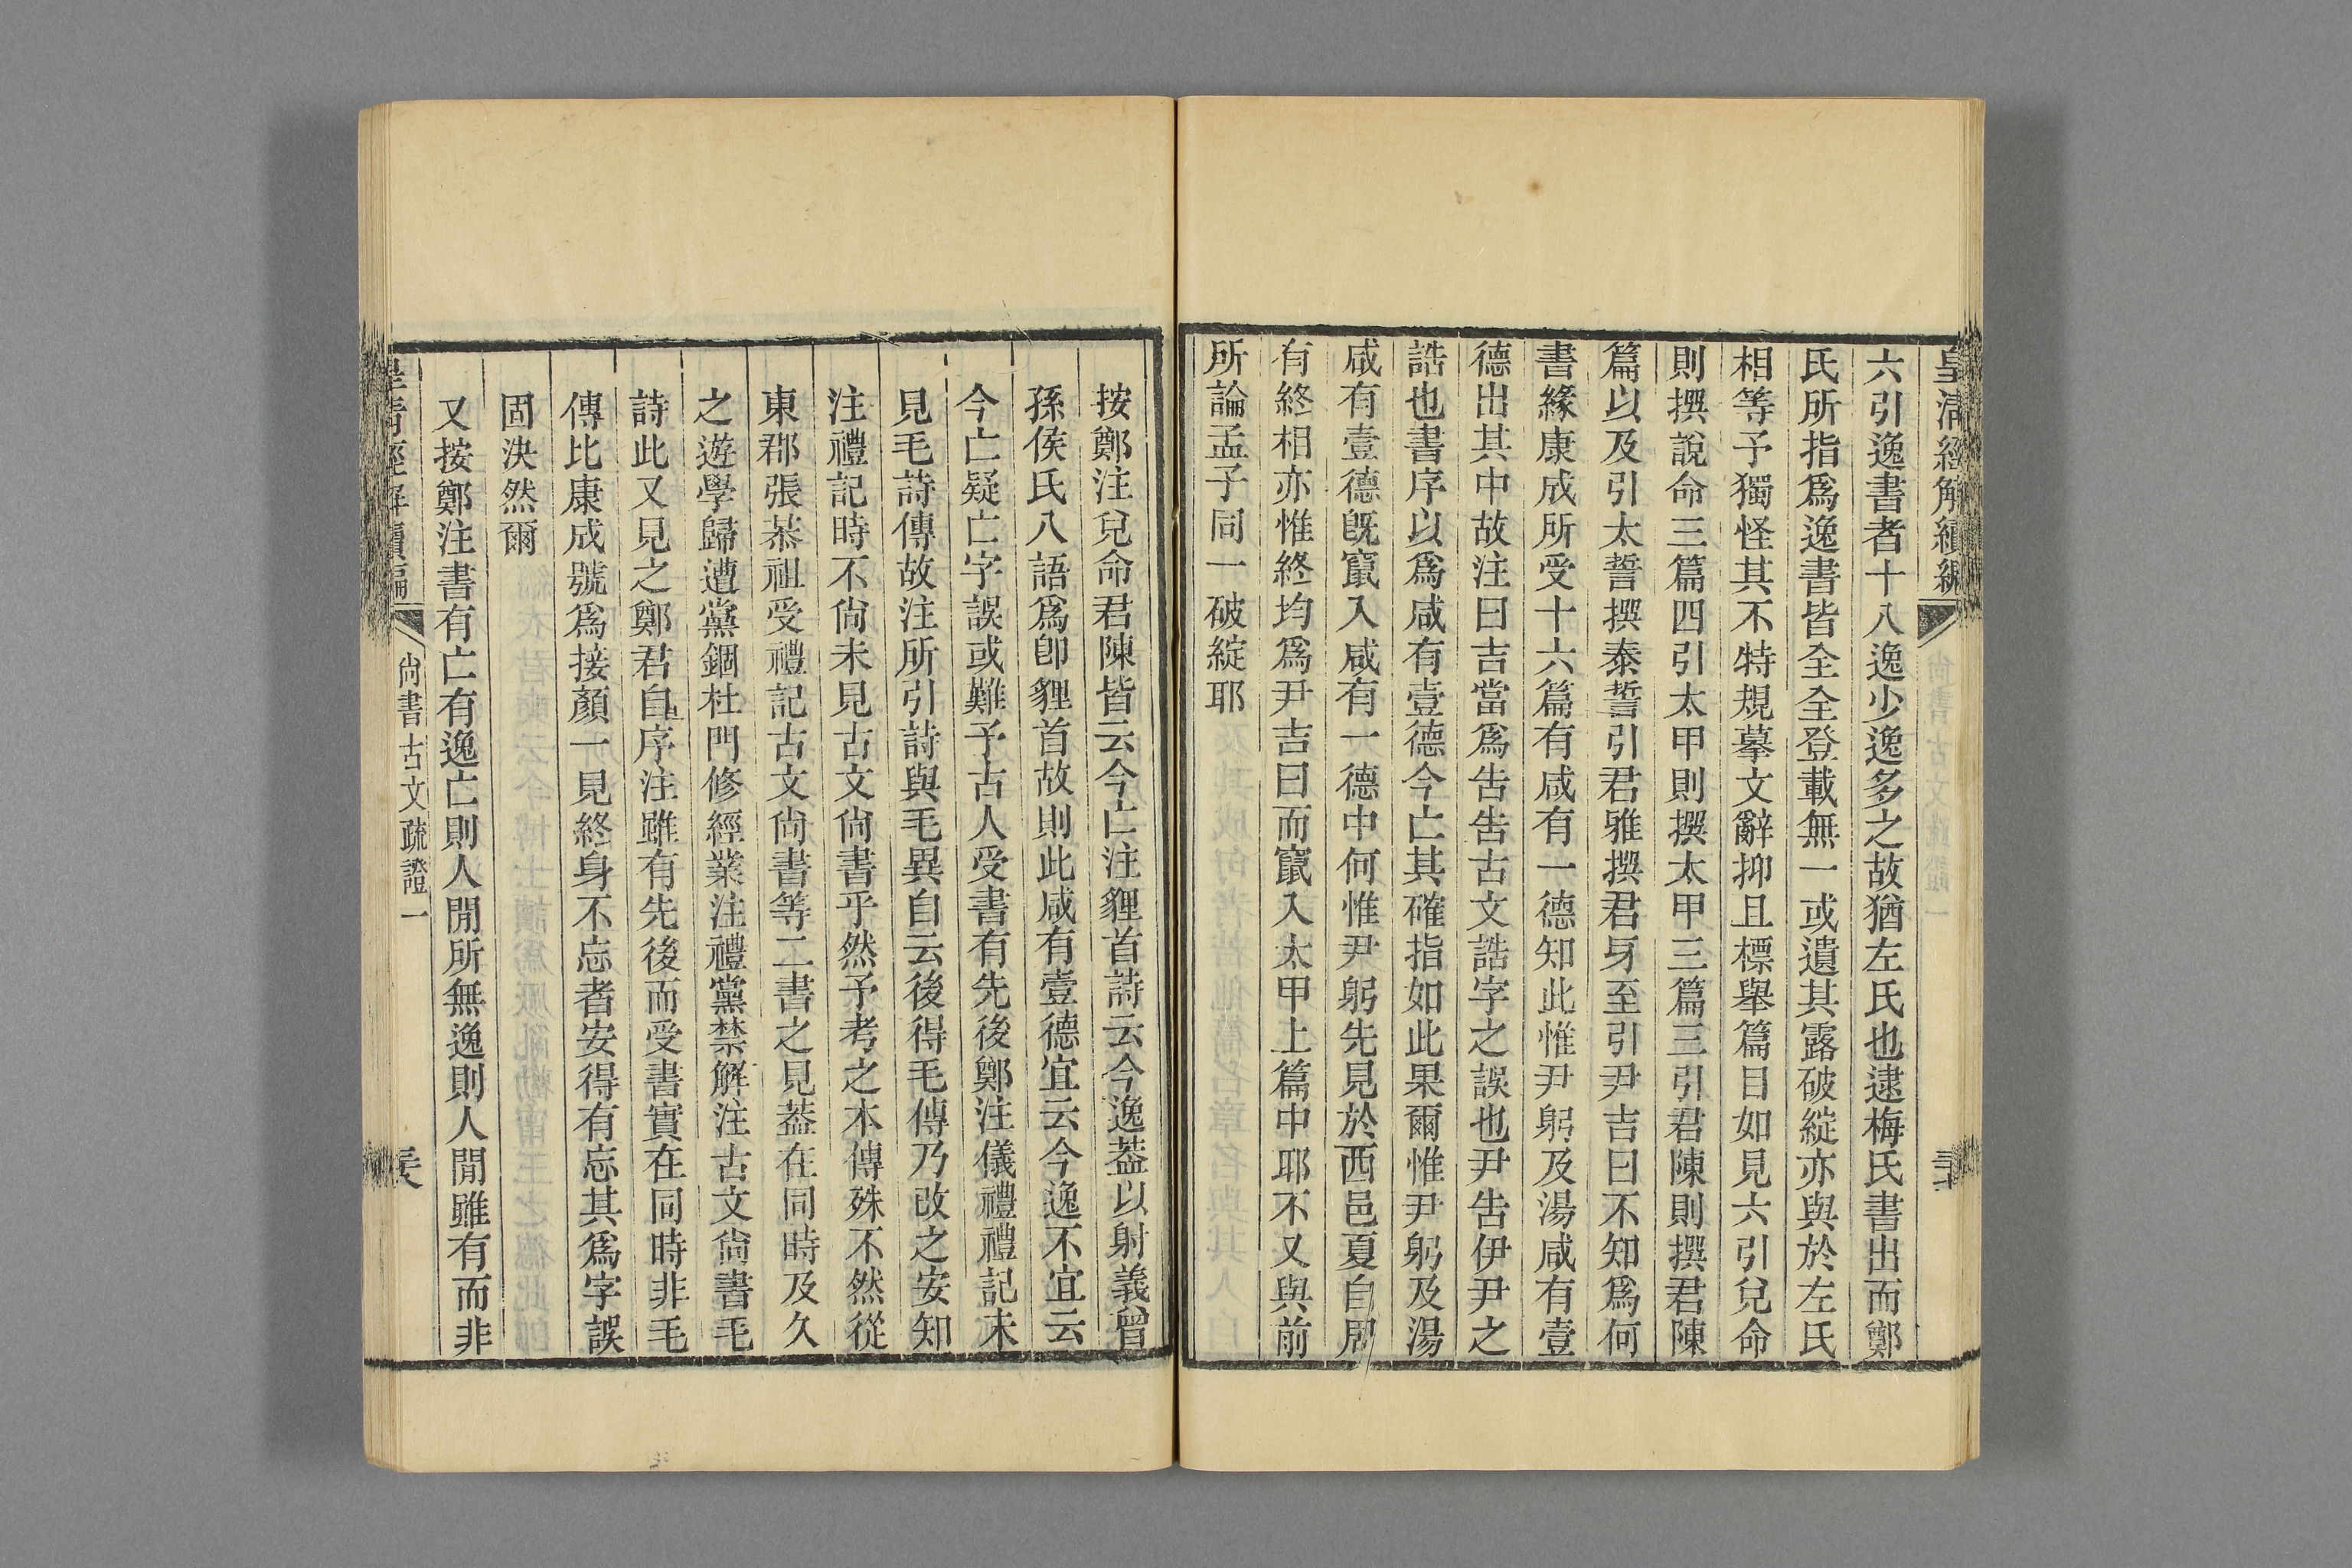 皇清經解續編
六引逸書者十八逸少逸多之故猶左氏也逮梅氏書出而鄭
氏所指爲逸書皆全全登載無一或遺其露破綻亦與於左氏
相等予獨怪其不特規摹文辭抑且標舉篇目如見六引兌命
則撰說命三篇四引太甲則撰太甲三篇三引君陳則撰君陳
篇以及引太誓撰泰誓引君雅撰君牙至引尹吉曰不知爲何
書緣康成所受十六篇有咸有一德知此惟尹躬及湯咸有壹
德出其中故注曰吉當爲告告古文誥字之誤也尹告伊尹之
誥也書序以爲咸有壹德今亡其確指如此果爾惟尹躬及湯
咸有壹德旣竄入咸有一德中何惟尹躬先見於西邑夏自周
有終相亦惟終均爲尹吉曰而竄入太甲上篇中耶不又與前
所論孟子同一破綻耶
按鄭注兌命君陳皆云今亡注貍首詩云今逸葢以射義曾
孫侯氏八語爲卽貍首故則此咸有壹德宜云今逸不宜云
今亡疑亡字誤或難予古人受書有先後鄭注儀禮禮記未
見毛詩傳故注所引詩與毛異自云後得毛傳乃改之安知
注禮記時不尙未見古文尙書乎然予考之本傳殊不然從
東郡張恭祖受禮記古文尙書等二書之見葢在同時及久
之遊學歸遭黨錮杜門修經業注禮黨禁解注古文尙書毛
詩此又見之鄭君自序注雖有先後而受書實在同時非毛
傳比康成號爲接顏一見終身不忘者安得有忘其爲字誤
固決然爾
又按鄭注書有亡有逸亡則人閒所無逸則人閒雖有而非
皇清經解續編
尙書古文疏證一